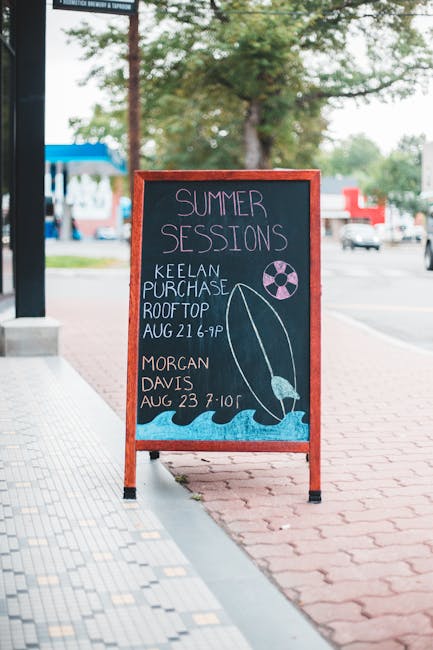 KOSMETICK BREWERY & TAPROOM
SUMMER
SESSIONS
KEELAN
PURCHASE
ROOFTOP
AUG 21 6-9P
MORGAN
DAVIS
AUG 23 7-10P